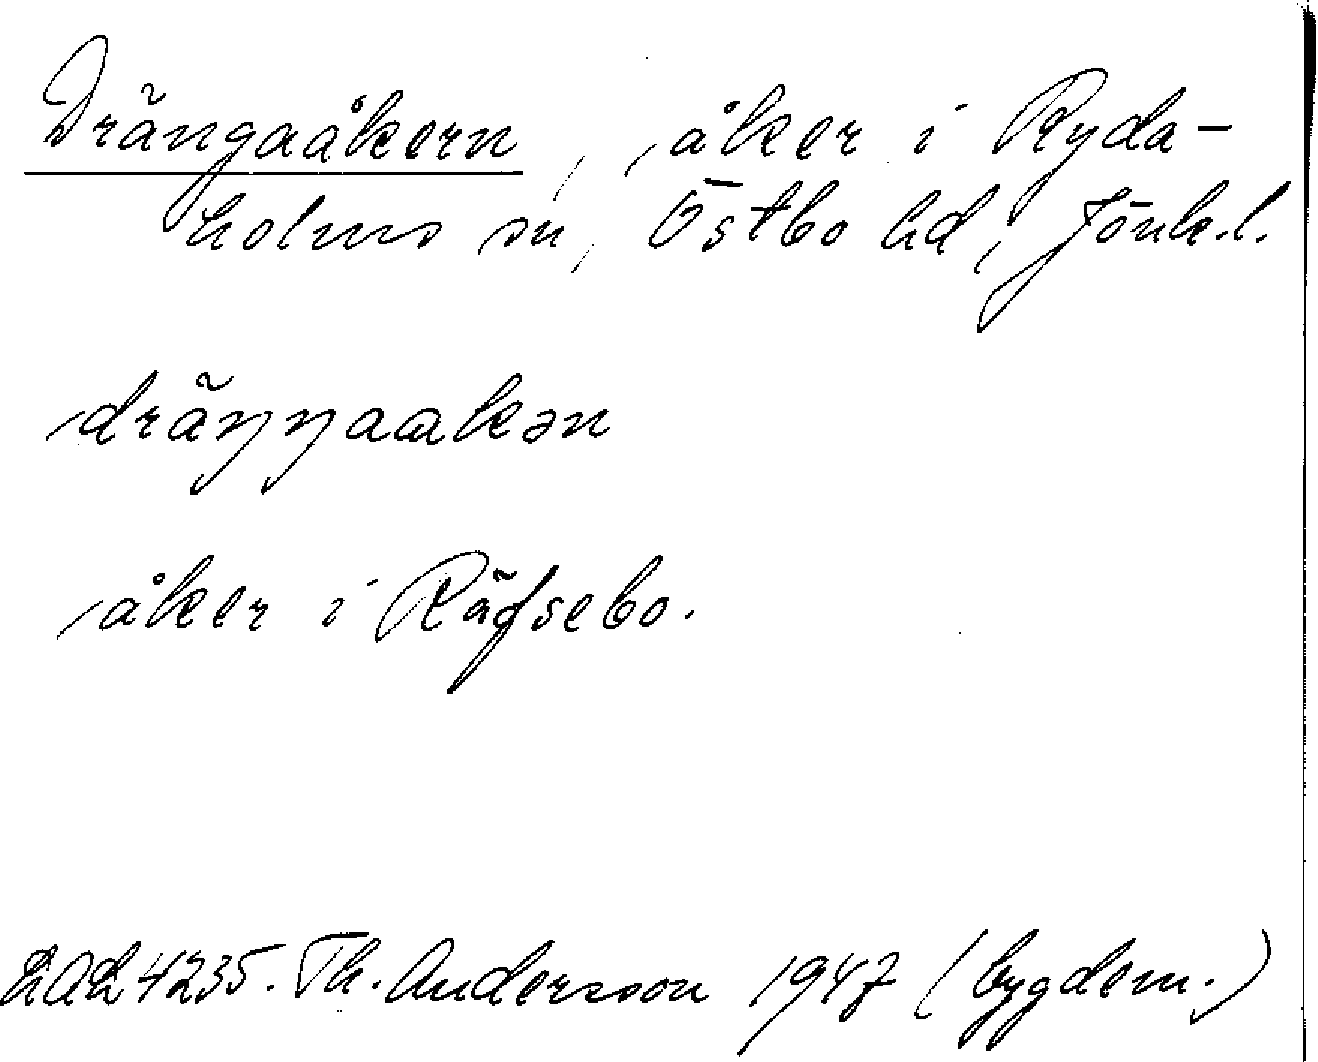 Drängaåkern, åker i Ryda-
holms sn, Östbo hd, Jönk.l.
dräŋŋaakən
åker i Räfsebo.
LAL 4235. Th. Andersson 1947 (bygdem.)